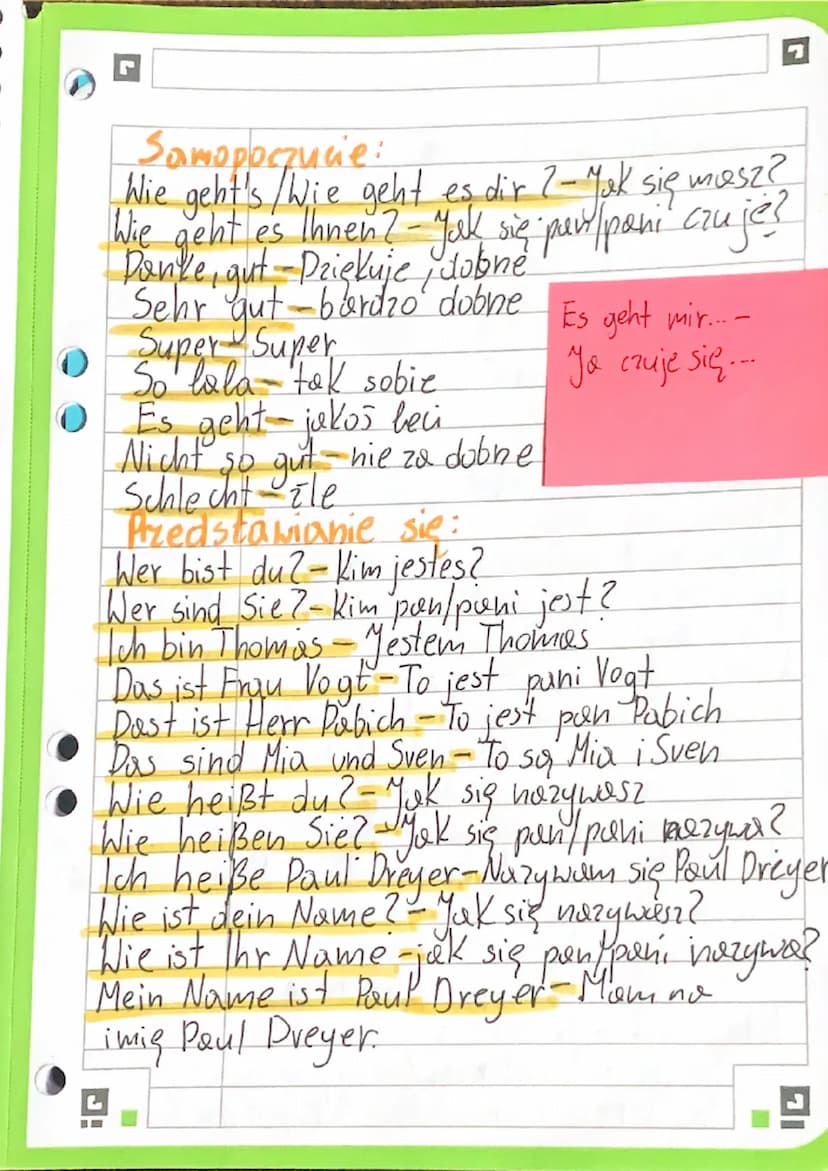 Samopoczucie:
Wie geht's/Wie geht es dir? - Jak się masz?
Wie geht es Ihnen? - Jak się pan/pani czuje?
Danke, gut - Dziękuje, dobrze
Sehr gut - bardzo dobrze
Super - Super
So lala - tak sobie
Es geht - jakoś leci
Nicht so gut - nie za dobrze
Schlecht - źle
Es geht mir... -
Ja czuje się...
Przedstawianie się:
Wer bist du? - Kim jesteś?
Wer sind Sie? - Kim pan/pani jest?
Ich bin Thomas - Jestem Thomas
Das ist Frau Vogt - To jest pani Vogt
Dast ist Herr Pabich - To jest pan Pabich
Das sind Mia und Sven - To są Mia i Sven
Wie heißt du? - Jak się nazywasz
Wie heißen Sie? - Jak się pan/pani nazywa?
Ich heiße Paul Dreyer - Nazywam się Paul Dreyer
Wie ist dein Name? - Jak się nazywasz?
Wie ist Ihr Name - jak się pan/pani nazywa?
Mein Name ist Paul Dreyer - Mam na
imię Paul Dreyer.